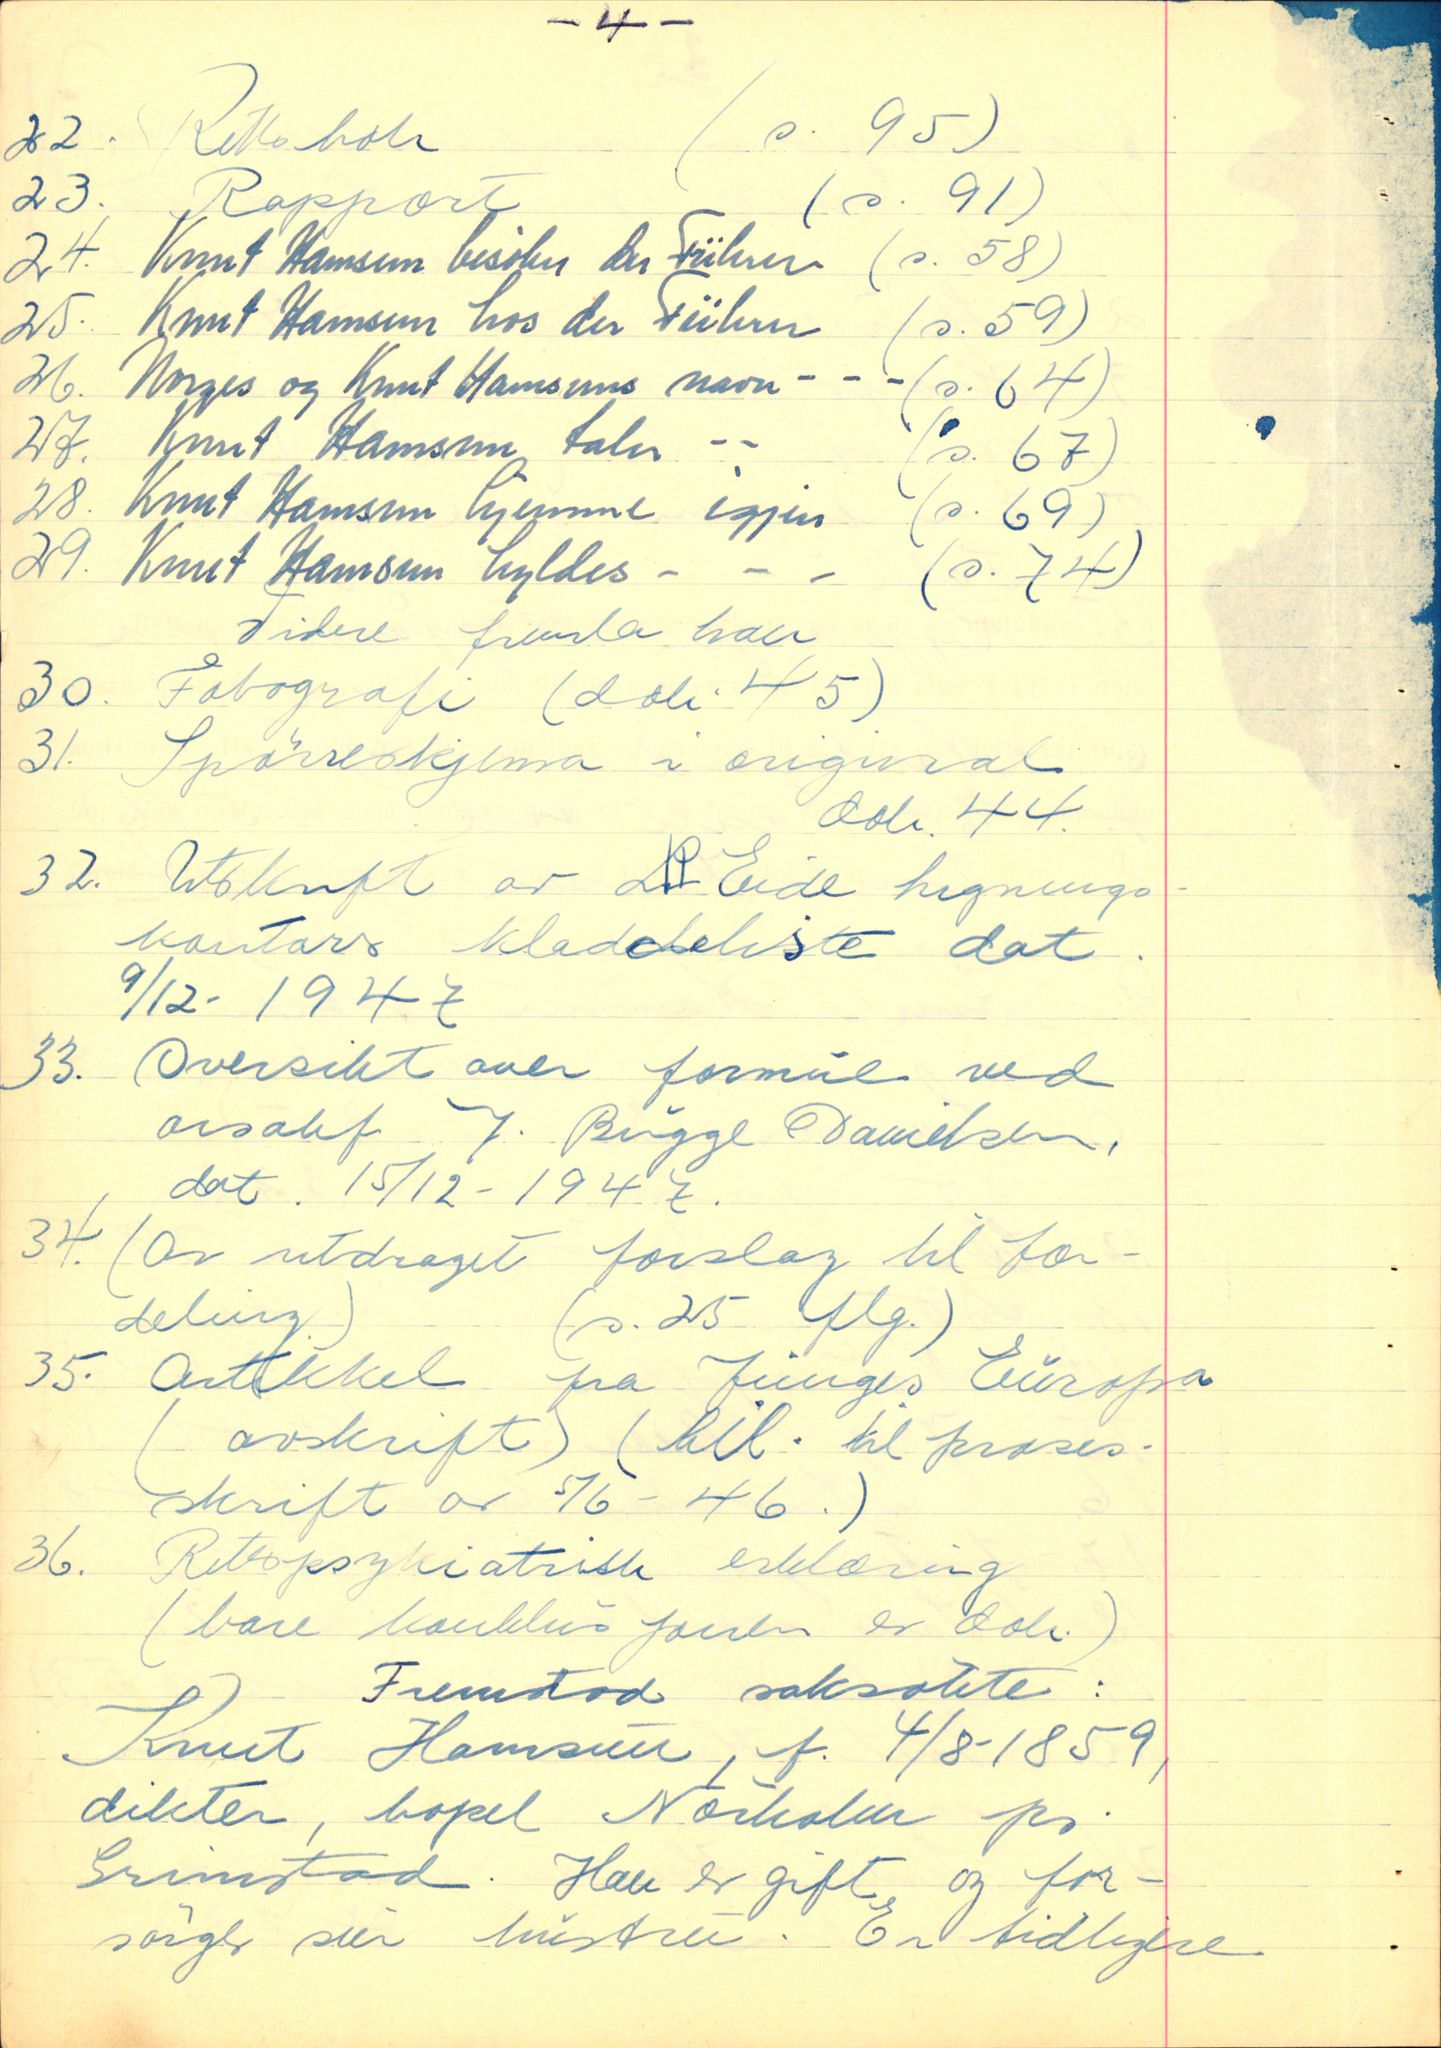 - 4 -
22. Rettsbok (s. 95)
23. Rapport (s. 91)
24. Knut Hamsun besöker der Führer (s. 58)
25. Knut Hamsun hos der Führer (s. 59)
26. Norges og Knut Hamsuns navn - - - (s. 64)
27. Knut Hamsun taler - - (s. 67)
28. Knut Hamsun hjemme igjen (s. 69)
29. Knut Hamsun hyldes - - - (s. 74)
Videre fremla han
30. Fotografi (dok. 45)
31. Spörreskjema i original
dok. 44.
32. Utskrift av Eide lignings-
kontors kladdeliste dat.
9/12 - 1947
33. Oversikt over formue ved
o.r.sakf. J. Bugge Danielsen,
dat. 15/12 - 1947.
34. (Av utdraget forslag til for-
deling) (s. 25 flg.)
35. Artikkel fra Junges Europa
(avskrift) (bil. til proses-
skrift av 5/6 - 46.)
36. Rettspsykiatrisk erklæring
(bare konklusjonen er dok.)
Fremstod saksökte:
Knut Hamsun, f. 4/8-1859,
dikter, bopel Nörholm pr.
Grimstad. Han er gift, og for-
sörger sin hustru. Er tidligere